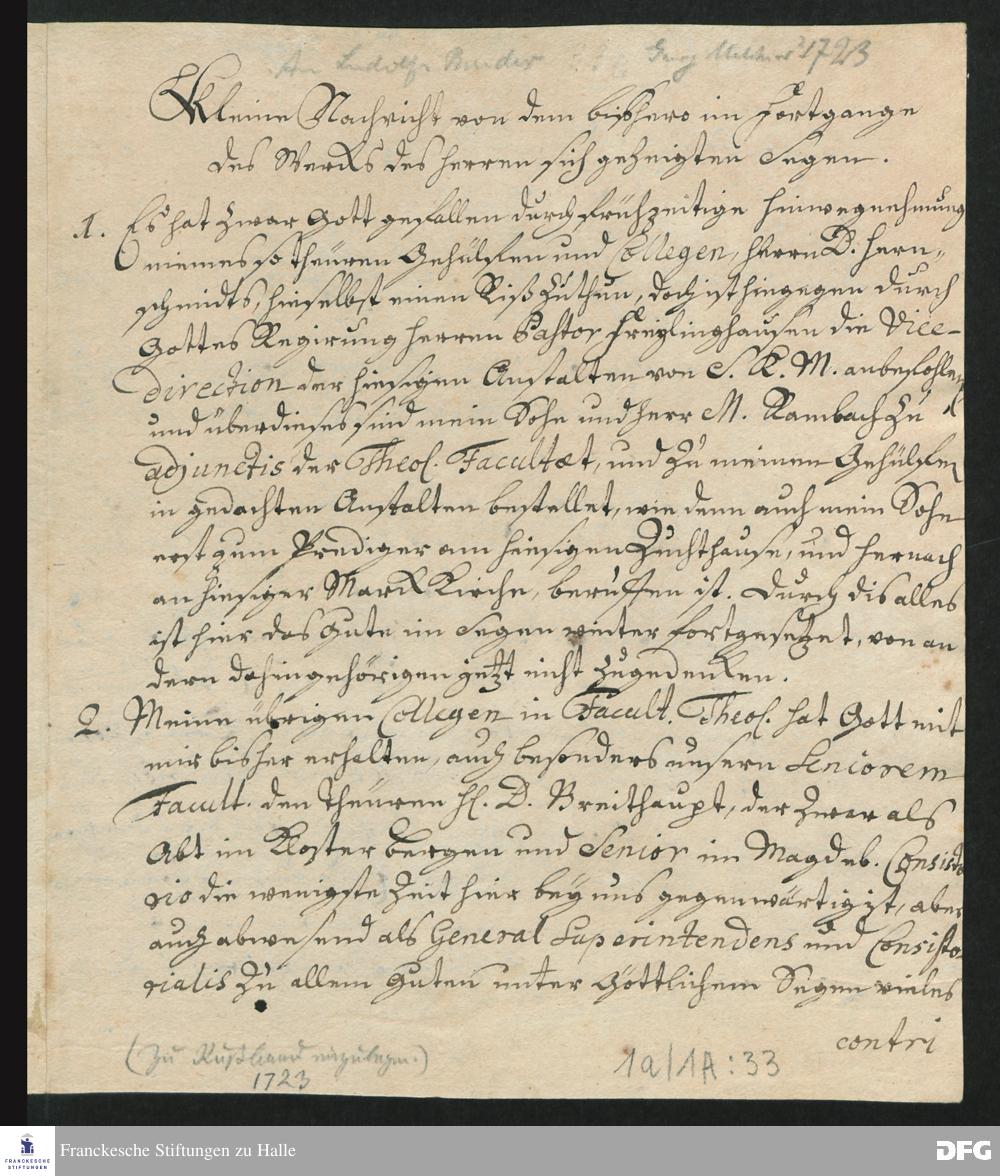 1723
Kleine Nachricht von dem bißhero im Fortgange
des Wercks des Herren sich gezeigten Segen.
1. Es hat zwar Gott gefallen durch frühzeitige hinwegnehmung
meines so theuren Gehülffen und Collegen, Herrn D. Hern„
schmidts, hieselbst einen Riß zu thun, doch ist hingegen durch
Gottes Regirung Herren Pastor Freylinghausen die Vice-
direction der hiesigen Anstalten von S. K. M. anbefohlen
und über dieses sind mein Sohn und Herr M. Rambach zu
adjunctis der Theol. Facultæt, und zu meinen Gehülffen
in gedachten Anstalten bestellet, wie denn auch mein Sohn
erst zum Prediger am hiesigen Zuchthause, und hernach
an hiesiger Marck Kirche, beruffen ist. Durch dis alles
ist hier das Gute im Segen weiter fortgesetzet, von an
dern dahin gehörigen jetzt nicht zu gedencken.
2. Meine übrigen Collegen in Facult. Theol. hat Gott mit
mir bisher erhalten, auch besonders unsern Seniorem
Facult. den theuren H. D. Breithaupt, der zwar als
Abt im Kloster Bergen und Senior im Magdeb. Consisto
rio die wenigste Zeit hier bey uns gegenwärtig ist, aber
auch abwesend als General Superintendens und Consisto-
rialis zu allem Guten unter Göttlichem Segen vieles
contri
(Zu Rußland einzulegen.)
1723
1a/1A:33
FRANCKESCHE
STIFTUNGEN
Franckesche Stiftungen zu Halle
DFG